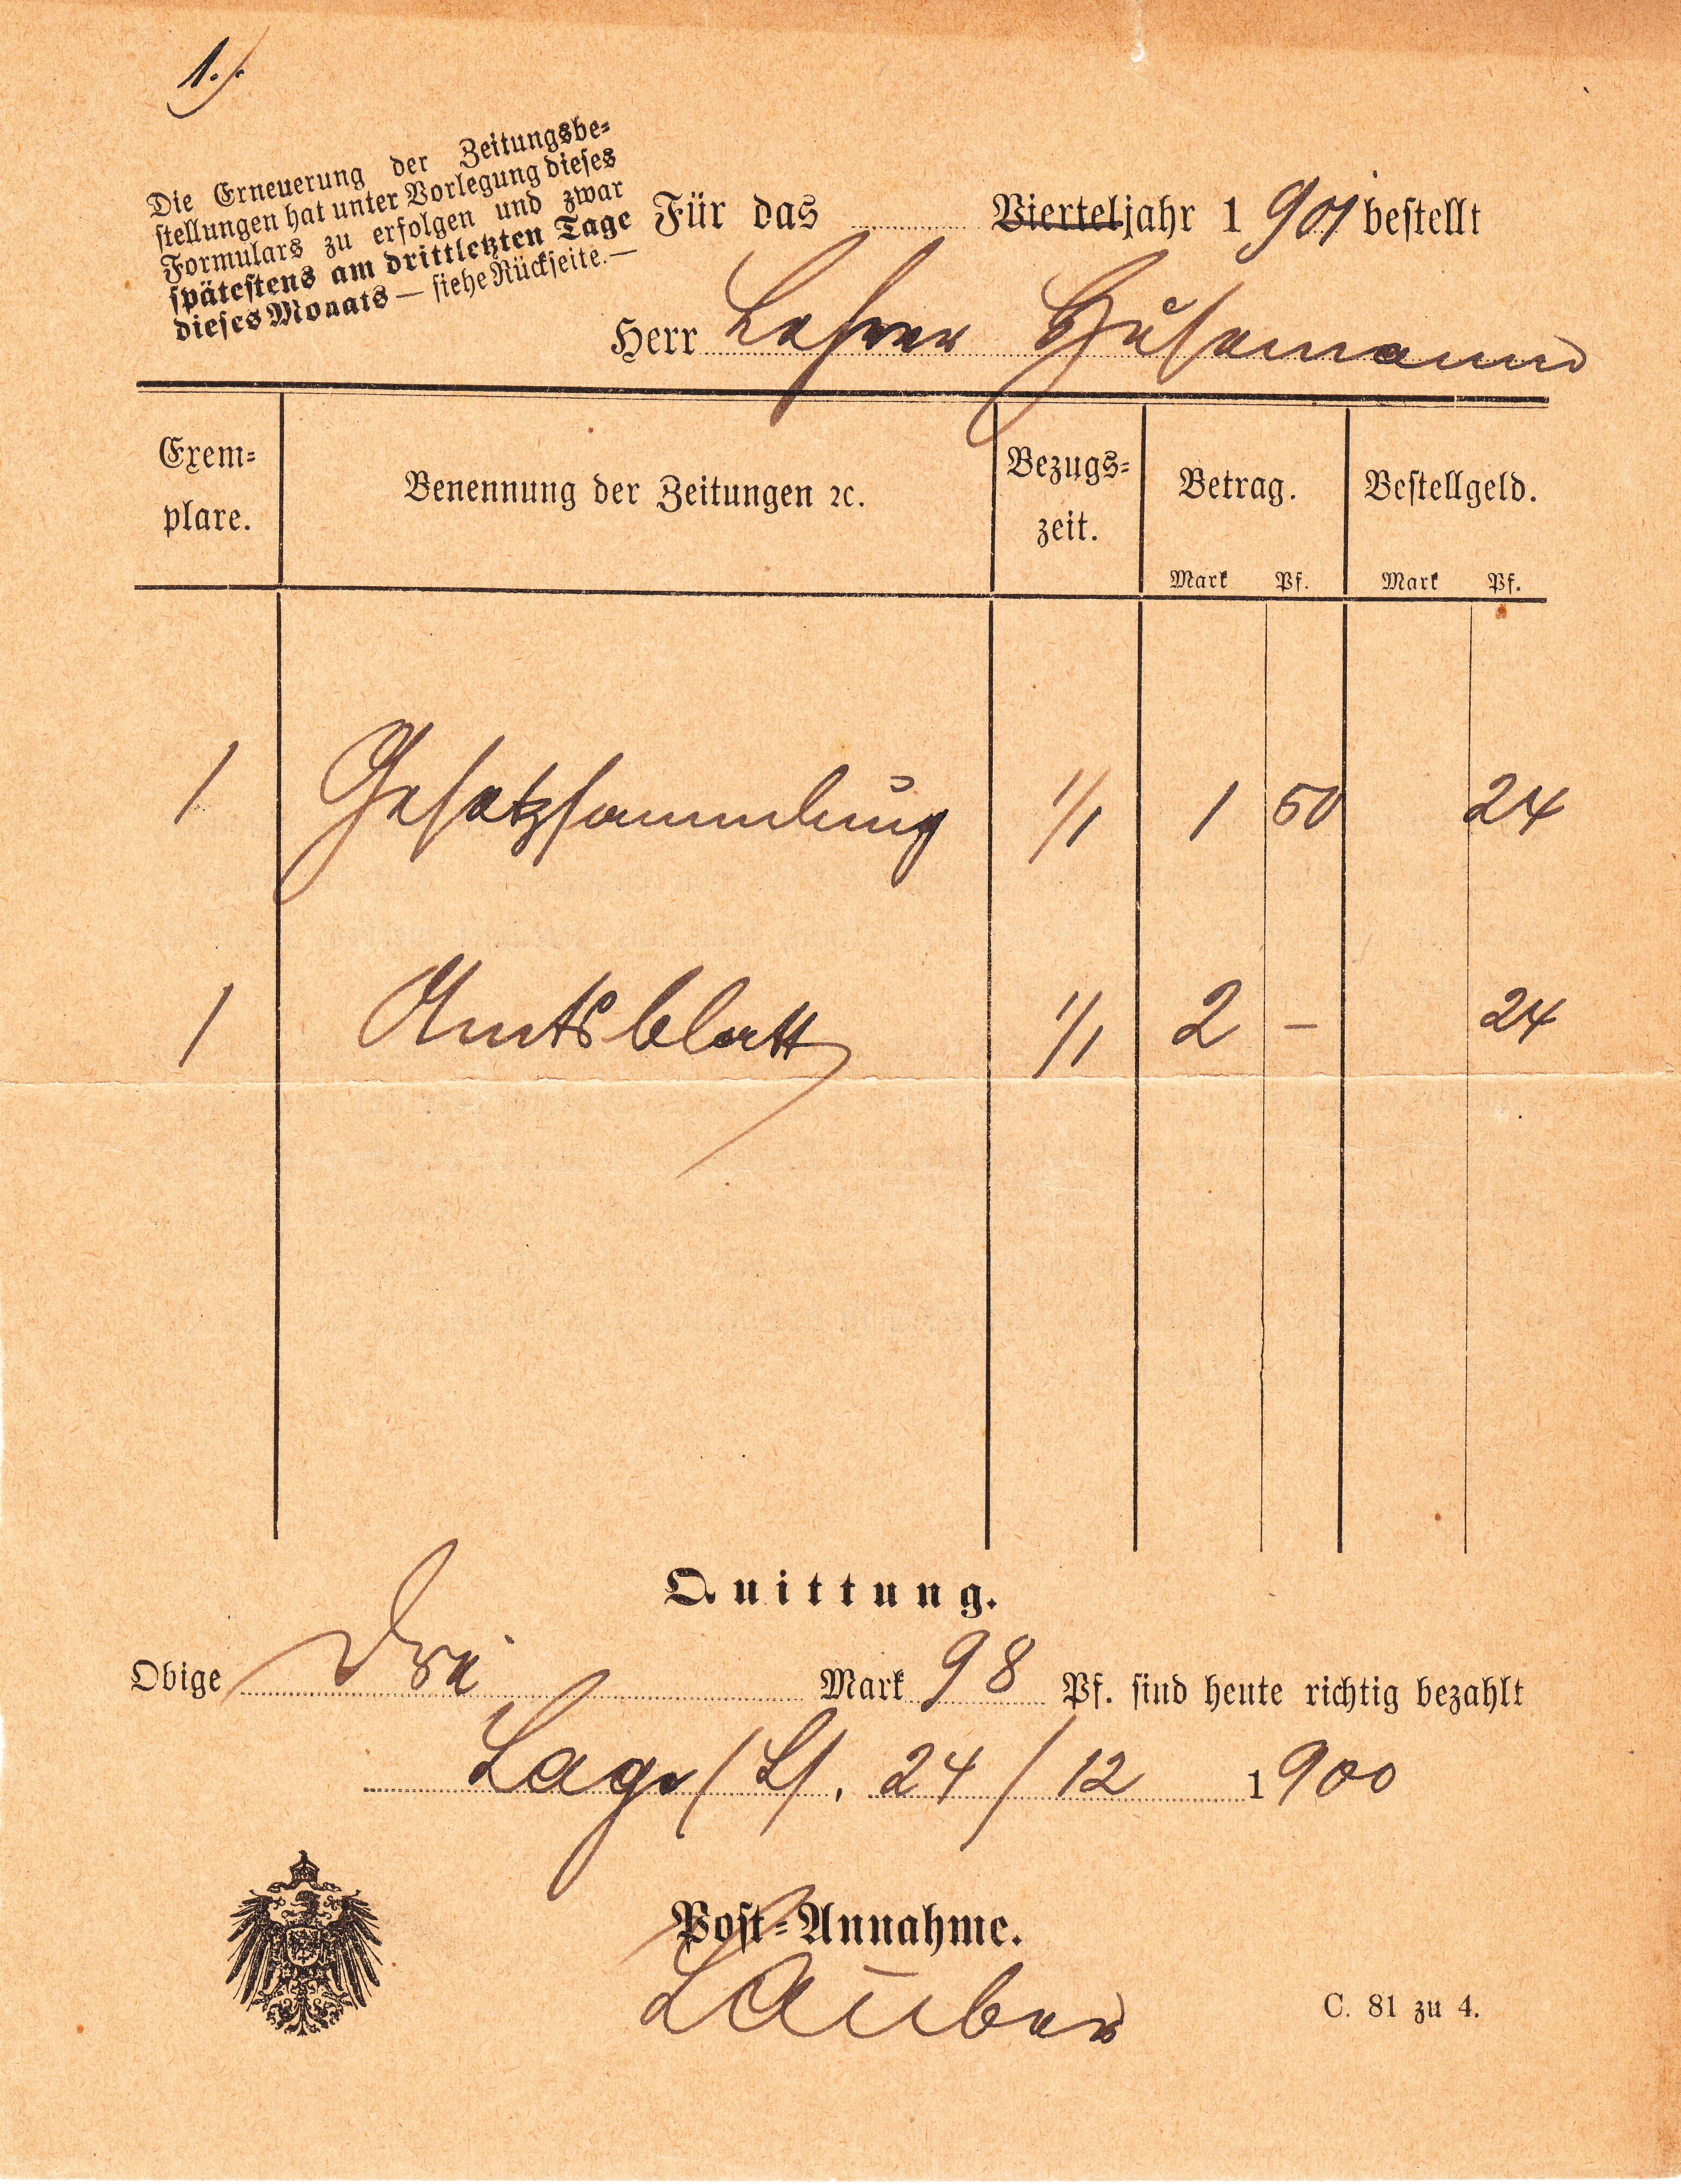 1./.
Die Erneuerung der Zeitungsbe-
stellungen hat unter Vorlegung dieses
Formulars zu erfolgen und zwar
spätestens am drittletzten Tage
dieses Monats — siehe Rückseite. —
Für das Vierteljahr 1901 bestellt
Herr Lehrer Hüsemann
Exem-
plare.
Benennung der Zeitungen ꝛc.
Bezugs-
zeit.
Betrag.
Mark Pf.
Bestellgeld.
Mark Pf.
1 Gesetzsammlung 1/1 1 50 24
1 Amtsblatt 1/1 2 – 24
Quittung.
Obige Drei Mark 98 Pf. sind heute richtig bezahlt
Lage (L), 24/12 1900
Post-Annahme.
Lauber
C. 81 zu 4.